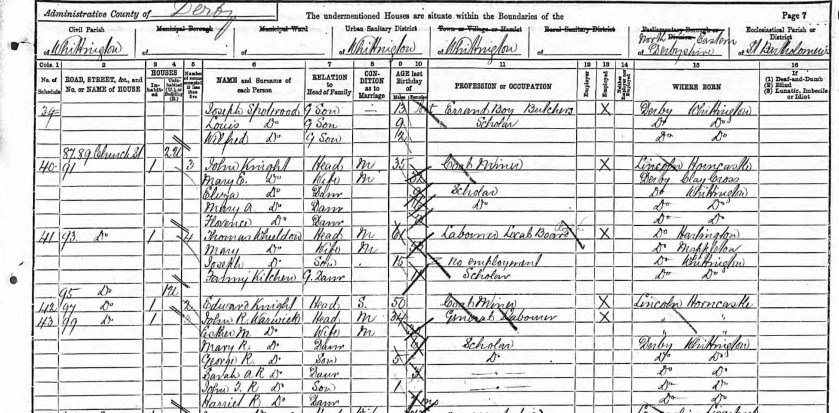 Administrative County of Derby The undermentioned Houses are situate within the Boundaries of the Page 7
Civil Parish of Whittington
Municipal Borough of
Municipal Ward of
Urban Sanitary District of Whittington
Town or Village or Hamlet of Whittington
Rural Sanitary District of
Parliamentary Borough or Division of North Eastern Derbyshire
Ecclesiastical Parish or District of St Bartholomew
Cols. 1 2 3 4 5 6 7 8 9 10 11 12 13 14 15 16
No. of Schedule ROAD, STREET, &c., and No. or NAME of HOUSE HOUSES Inhabited Uninhabited (U.) or Building (B.) Number of rooms occupied if less than five NAME and Surname of each Person RELATION to Head of Family CONDITION as to Marriage AGE last Birthday of Males Females PROFESSION or OCCUPATION Employer Employed Neither WHERE BORN If (1) Deaf-and-Dumb (2) Blind (2) Lunatic, Imbecile or Idiot
39 Joseph G Son 13 Errand Boy Butchers X Derby Whittington
Louis Do G Son 9 Scholar Do Do
Wilfred Do G Son 2 Do Do
87.89 Church St 2U
40 91 1 3 John Knight Head M 35 Coal Miner X Lincoln Horncastle
Mary E. Do Wife M Derby Clay Cross
Eliza Do Daur Scholar Do Whittington
Mary A Do Daur Do Do Do
Florence Do Daur Do Do
41 93 Do 1 4 Thomas Wheeldon Head M 61 Labourer Local Board X Do Hartington
Mary Do Wife M Do Mappleton
Joseph Do Son 15 no employment Do Whittington
Fanny Kitchen G. Daur Scholar Do Do
95 Do 1U
42 97 Do 1 Edward Knight Head S. 50 Coal Miner X Lincoln Horncastle
43 99 Do 1 John R. Warwick Head M 34 General Labourer X " "
Esther M Do Wife M " "
Mary R. Do Daur Scholar Derby Whittington
George R. Do Son 5 Do Do Do
Sarah A R Do Daur Do Do
John T. R Do Son 1 Do Do
Harriet R Do Daur Do Do